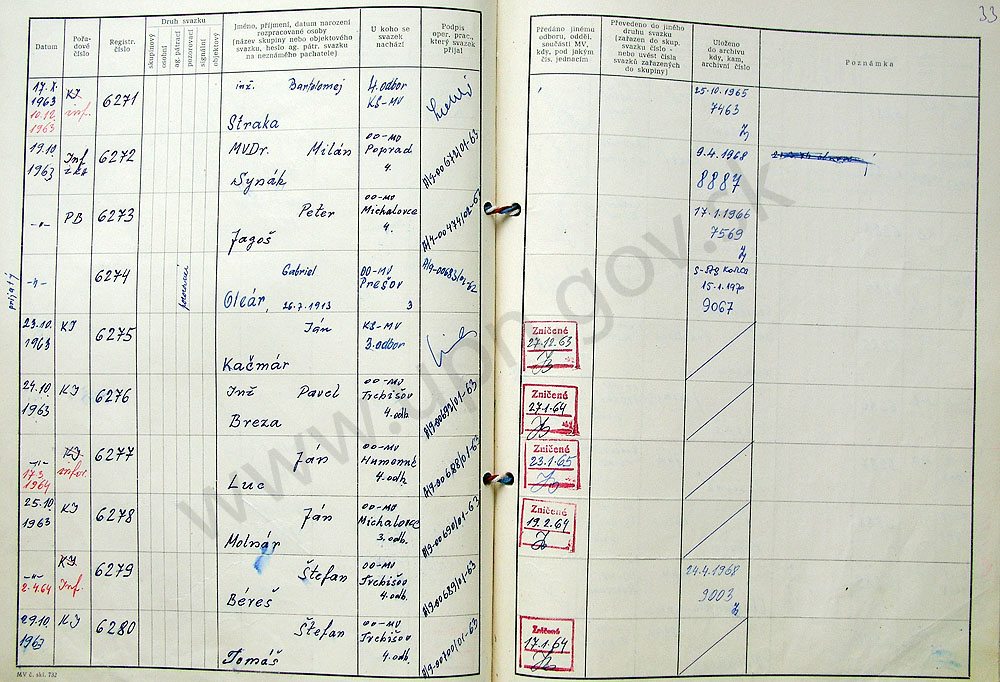 33
Datum
Pořadové číslo
Registr. číslo
Druh svazku
skupinový
osobní
ag. pátrací
pozorovací
signální
objektový
Jméno, příjmení, datum narození
rozpracované osoby
(název skupiny nebo objektového
svazku, heslo ag. pátr. svazku
na neznámého pachatele)
U koho se
svazek
nachází
Podpis
oper. prac.,
který svazek
převzal
Předáno jinému
odboru, odděl.
součásti MV,
kdy, pod jakým
čís. jednacím
Převedeno do jiného
druhu svazku
(zařazen do skup.
svazku číslo -
nebo uvést čísla
svazků zařazených
do skupiny)
Uloženo
do archivu
kdy, kam,
archivní číslo
Poznámka
17.X. 1963 KI 6271 inž. Bartolomej 4. odbor
10.12. 1963 inf. Straka KS-MV
25.10.1965
7463
19.10 1963 Inf 6272 MVDr. Milán OO-MV
Synák Poprad
4.
A/9-00672/01-63
9.4.1968
8887
-"- PB 6273 Peter OO-MV
Jagoš Michalovce
4.
17.1.1966
7569
prijatý
-"- 6274 Gabriel OO-MV
Oleár, 26.7.1913 Prešov
3
15.1.1970
9067
23.10. 1963 KI 6275 Ján KS-MV
Kačmár 3. odbor
Zničené
27.12.63
24.10. 1963 KI 6276 Inž Pavel OO-MV
Breza Trebišov
4. odb.
A/9-00693/01-63
Zničené
27.1.64
-"- KI 6277 Ján OO-MV
17.3. 1964 infor. Luc Humenné
4. odb.
A/9-00688/01-63
Zničené
23.1.65
25.10. 1963 KI 6278 Ján OO-MV
Molnár Michalovce
3. odb.
A/9-00690/01-63
Zničené
19.2.64
-"- KI 6279 Štefan OO-MV
2.4.64 Inf. Béreš Trebišov
4. odb.
A/9-00689/01-63
24.4.1968
9003
29.10 1963 KI 6280 Štefan OO-MV
Tomáš Trebišov
4. odb.
A/9-00700/01-63
Zničené
17.1.64
MV č. skl. 732
www.upn.gov.sk